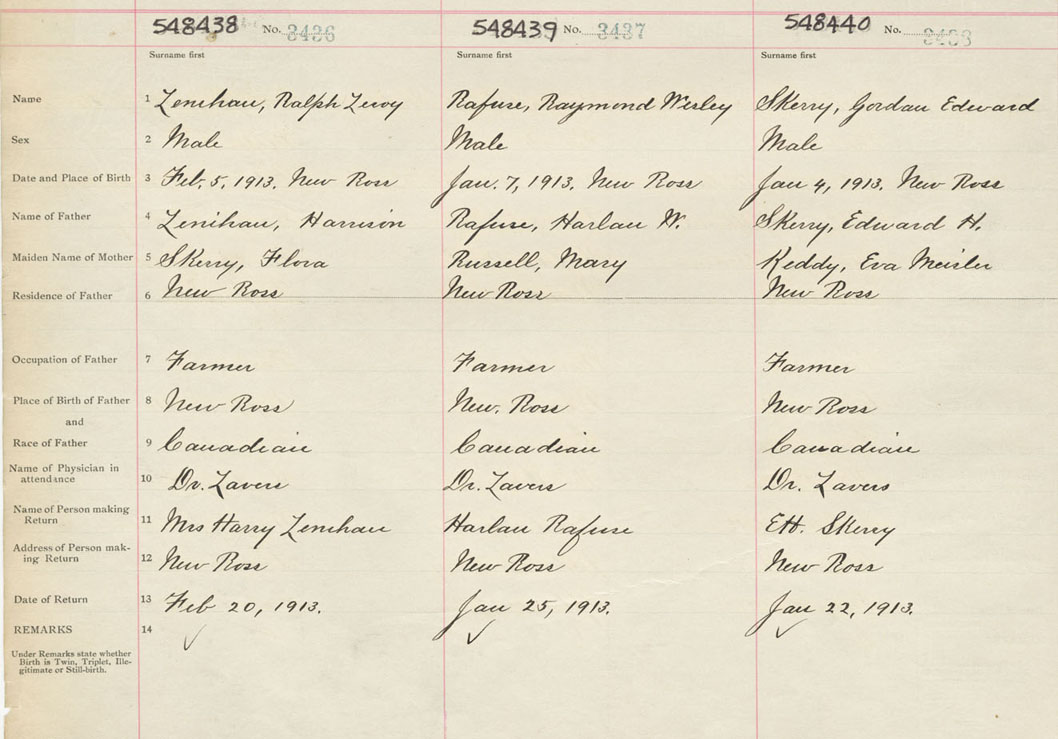 548438 No. 3436 548439 No. 3437 548440 No. 3438
Surname first Surname first Surname first
Name 1 Lenihan, Ralph Leroy Rafuse, Raymond Wesley Skerry, Gordan Edward
Sex 2 Male Male Male
Date and Place of Birth 3 Feb. 5, 1913. New Ross Jan. 7, 1913. New Ross Jan 4, 1913. New Ross
Name of Father 4 Lenihan, Harrison Rafuse, Harlan W. Skerry, Edward H.
Maiden Name of Mother 5 Skerry, Flora Russell, Mary Keddy, Eva Meisler
Residence of Father 6 New Ross New Ross New Ross
Occupation of Father 7 Farmer Farmer Farmer
Place of Birth of Father 8 New Ross New. Ross New Ross
and
Race of Father 9 Canadian Canadian Canadian
Name of Physician in
attendance 10 Dr. Lavers Dr. Lavers Dr. Lavers
Name of Person making
Return 11 Mrs Harry Lenihan Harlan Rafuse EH. Skerry
Address of Person mak-
ing Return 12 New Ross New Ross New Ross
Date of Return 13 Feb 20, 1913. Jan 25, 1913. Jan 22, 1913.
REMARKS 14
Under Remarks state whether
Birth is Twin, Triplet, Ille-
gitimate or Still-birth.